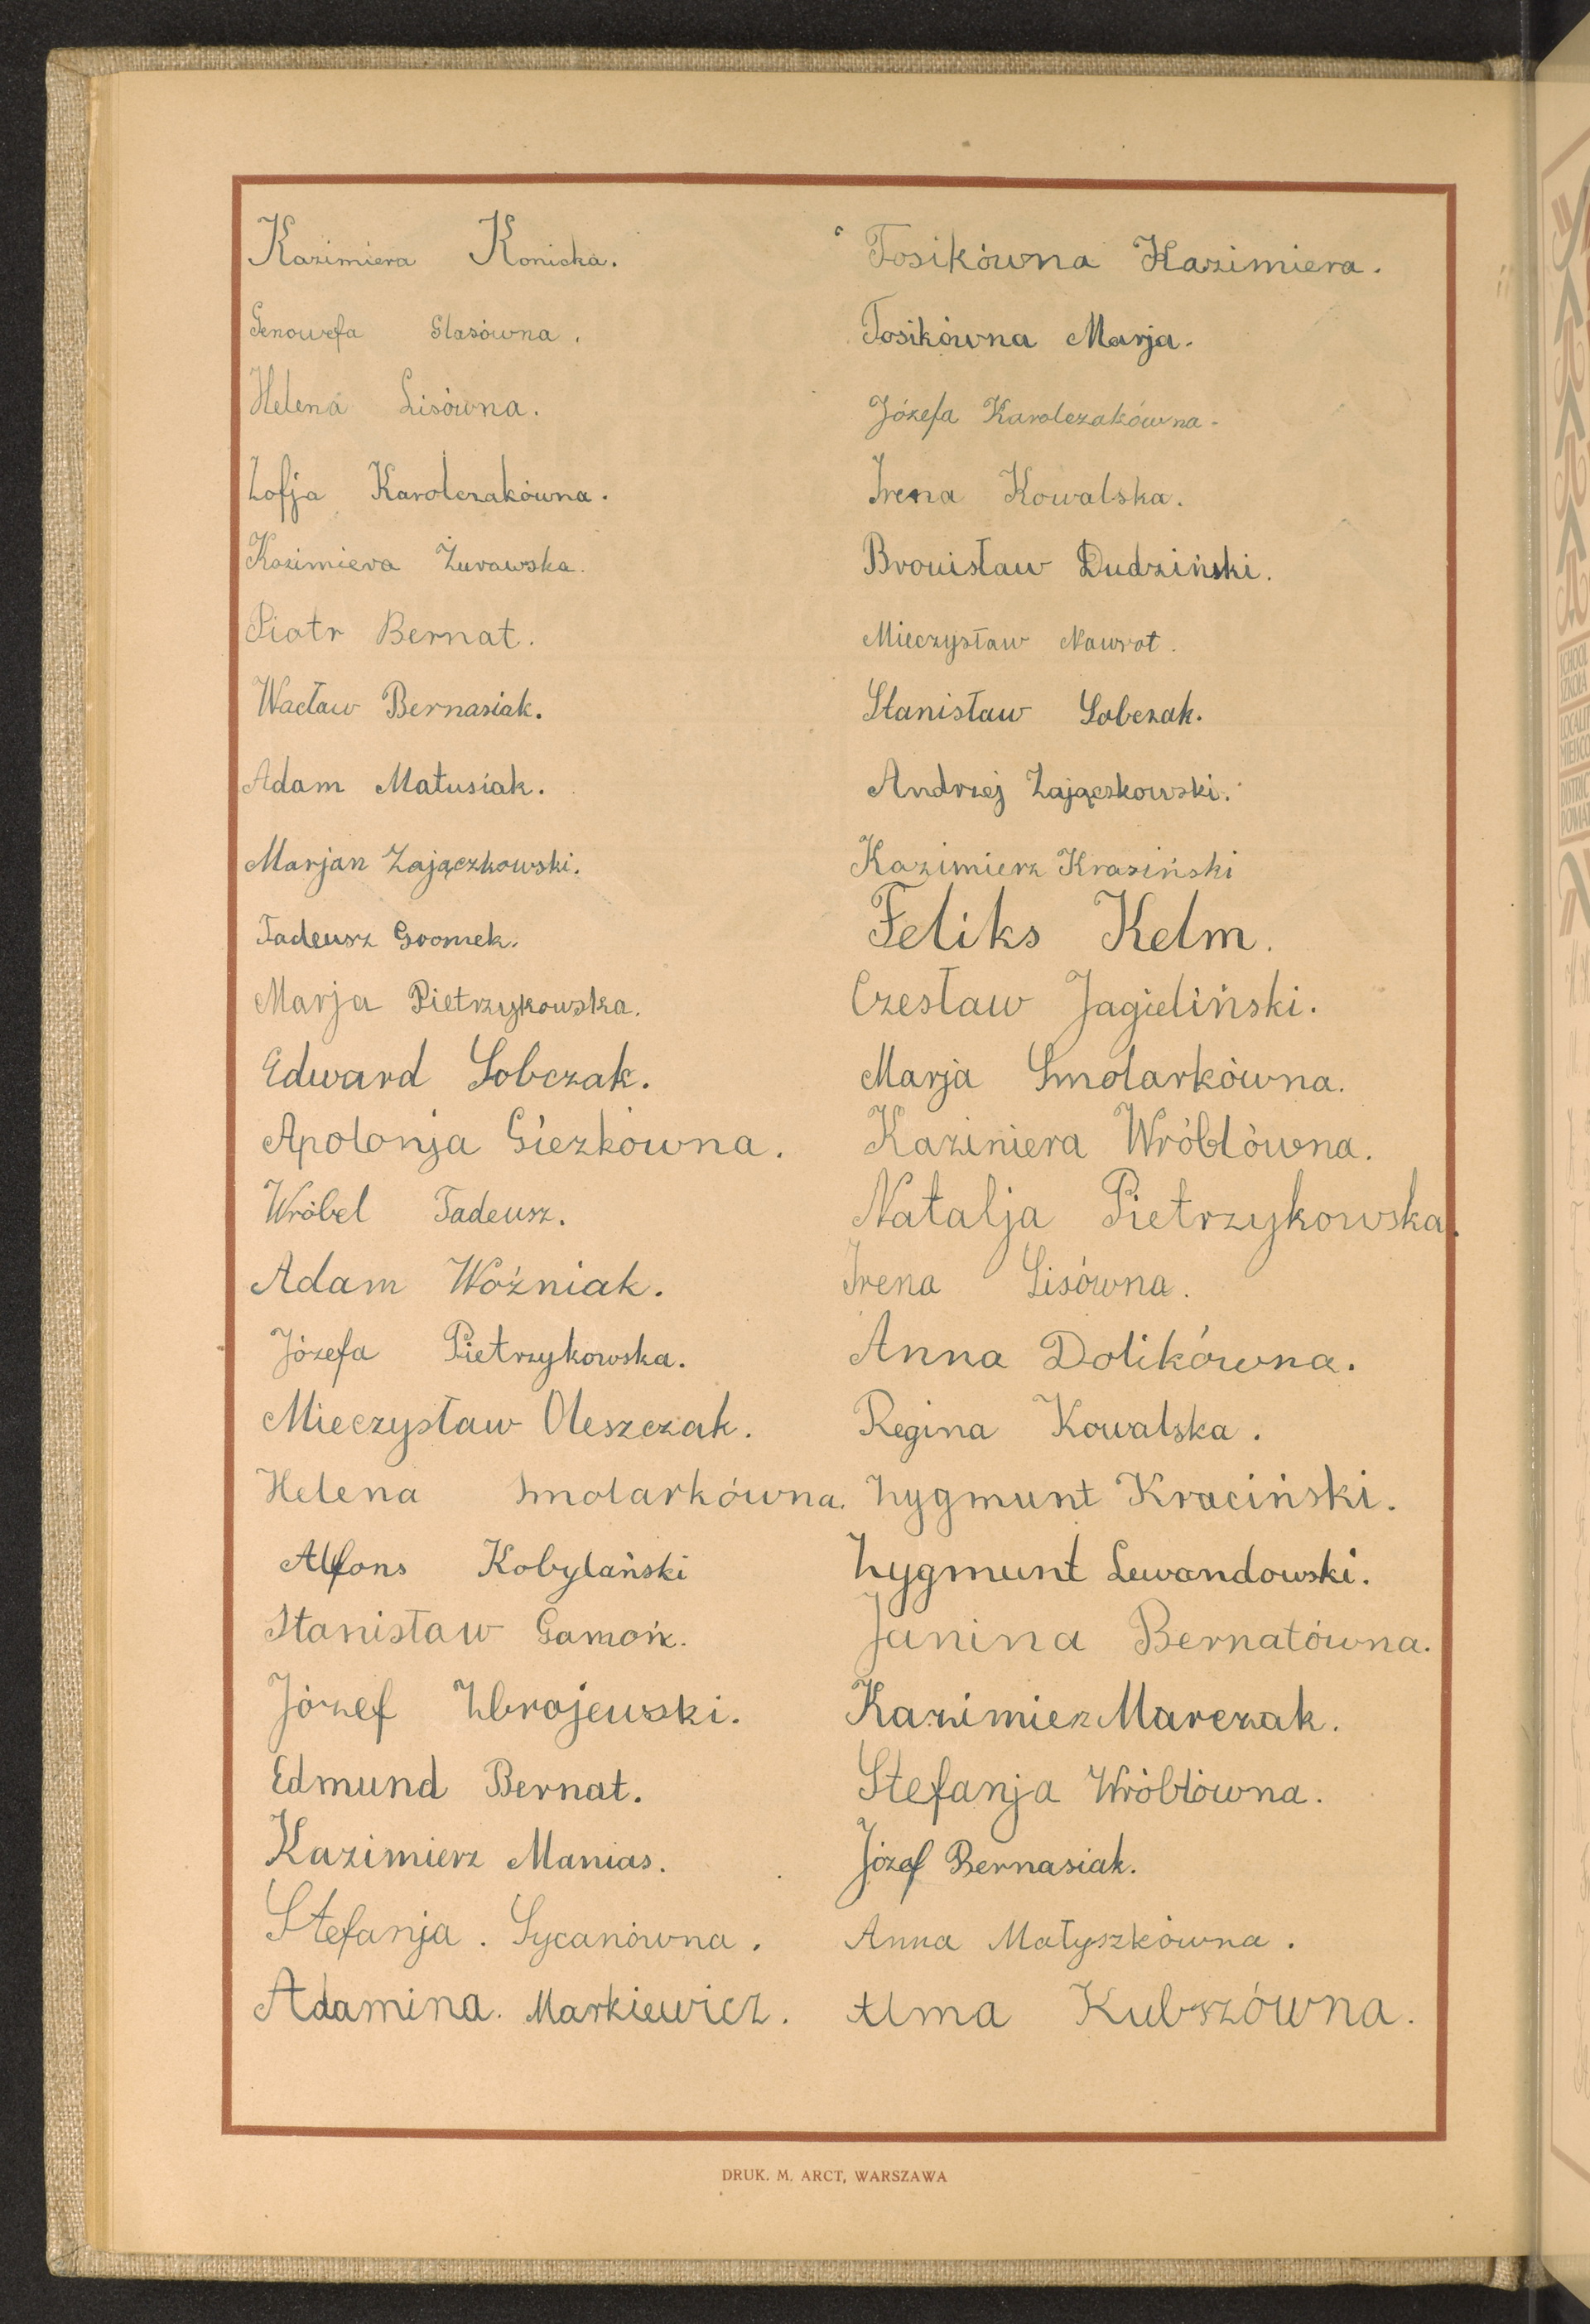 Kazimiera Konicka.
Genowefa Glasówna.
Helena Lisówna.
Zofja Karolczakówna.
Kazimiera Żurawska.
Piotr Bernat.
Wacław Bernasiak.
Adam Matusiak.
Marjan Zajączkowski.
Tadeusz Gromek.
Marja Pietrzykowska.
Edward Sobczak.
Apolonja Giezkówna.
Wróbel Tadeusz.
Adam Woźniak.
Józefa Pietrzykowska.
Mieczysław Oleszczak.
Helena Smolarkówna.
Alfons Kobylański
Stanisław
Józef Zbrojewski.
Edmund Bernat.
Kazimierz Manias.
Stefanja. Sycanówna.
Adamina. Markiewicz.
Tosikówna Kazimiera.
Tosikówna Marja.
Józefa Karolczakówna.
Irena Kowalska.
Bronisław Dudziński.
Mieczysław Nawrot.
Stanisław Sobczak.
Andrzej Zajączkowski.
Kazimierz Krasiński
Feliks Kelm.
Czesław Jagieliński.
Marja Smolarkówna.
Kaziniera Wróblówna.
Natalja Pietrzykowska.
Irena Lisówna.
Anna Dolikówna.
Regina Kowalska.
Zygmunt Kraciński.
Zygmunt Lewandowski.
Janina Bernatówna.
Kazimiez Marczak.
Stefanja Wróblówna.
Józef Bernasiak.
Anna Małyszkówna.
Alma Kubszówna.
DRUK. M. ARCT, WARSZAWA